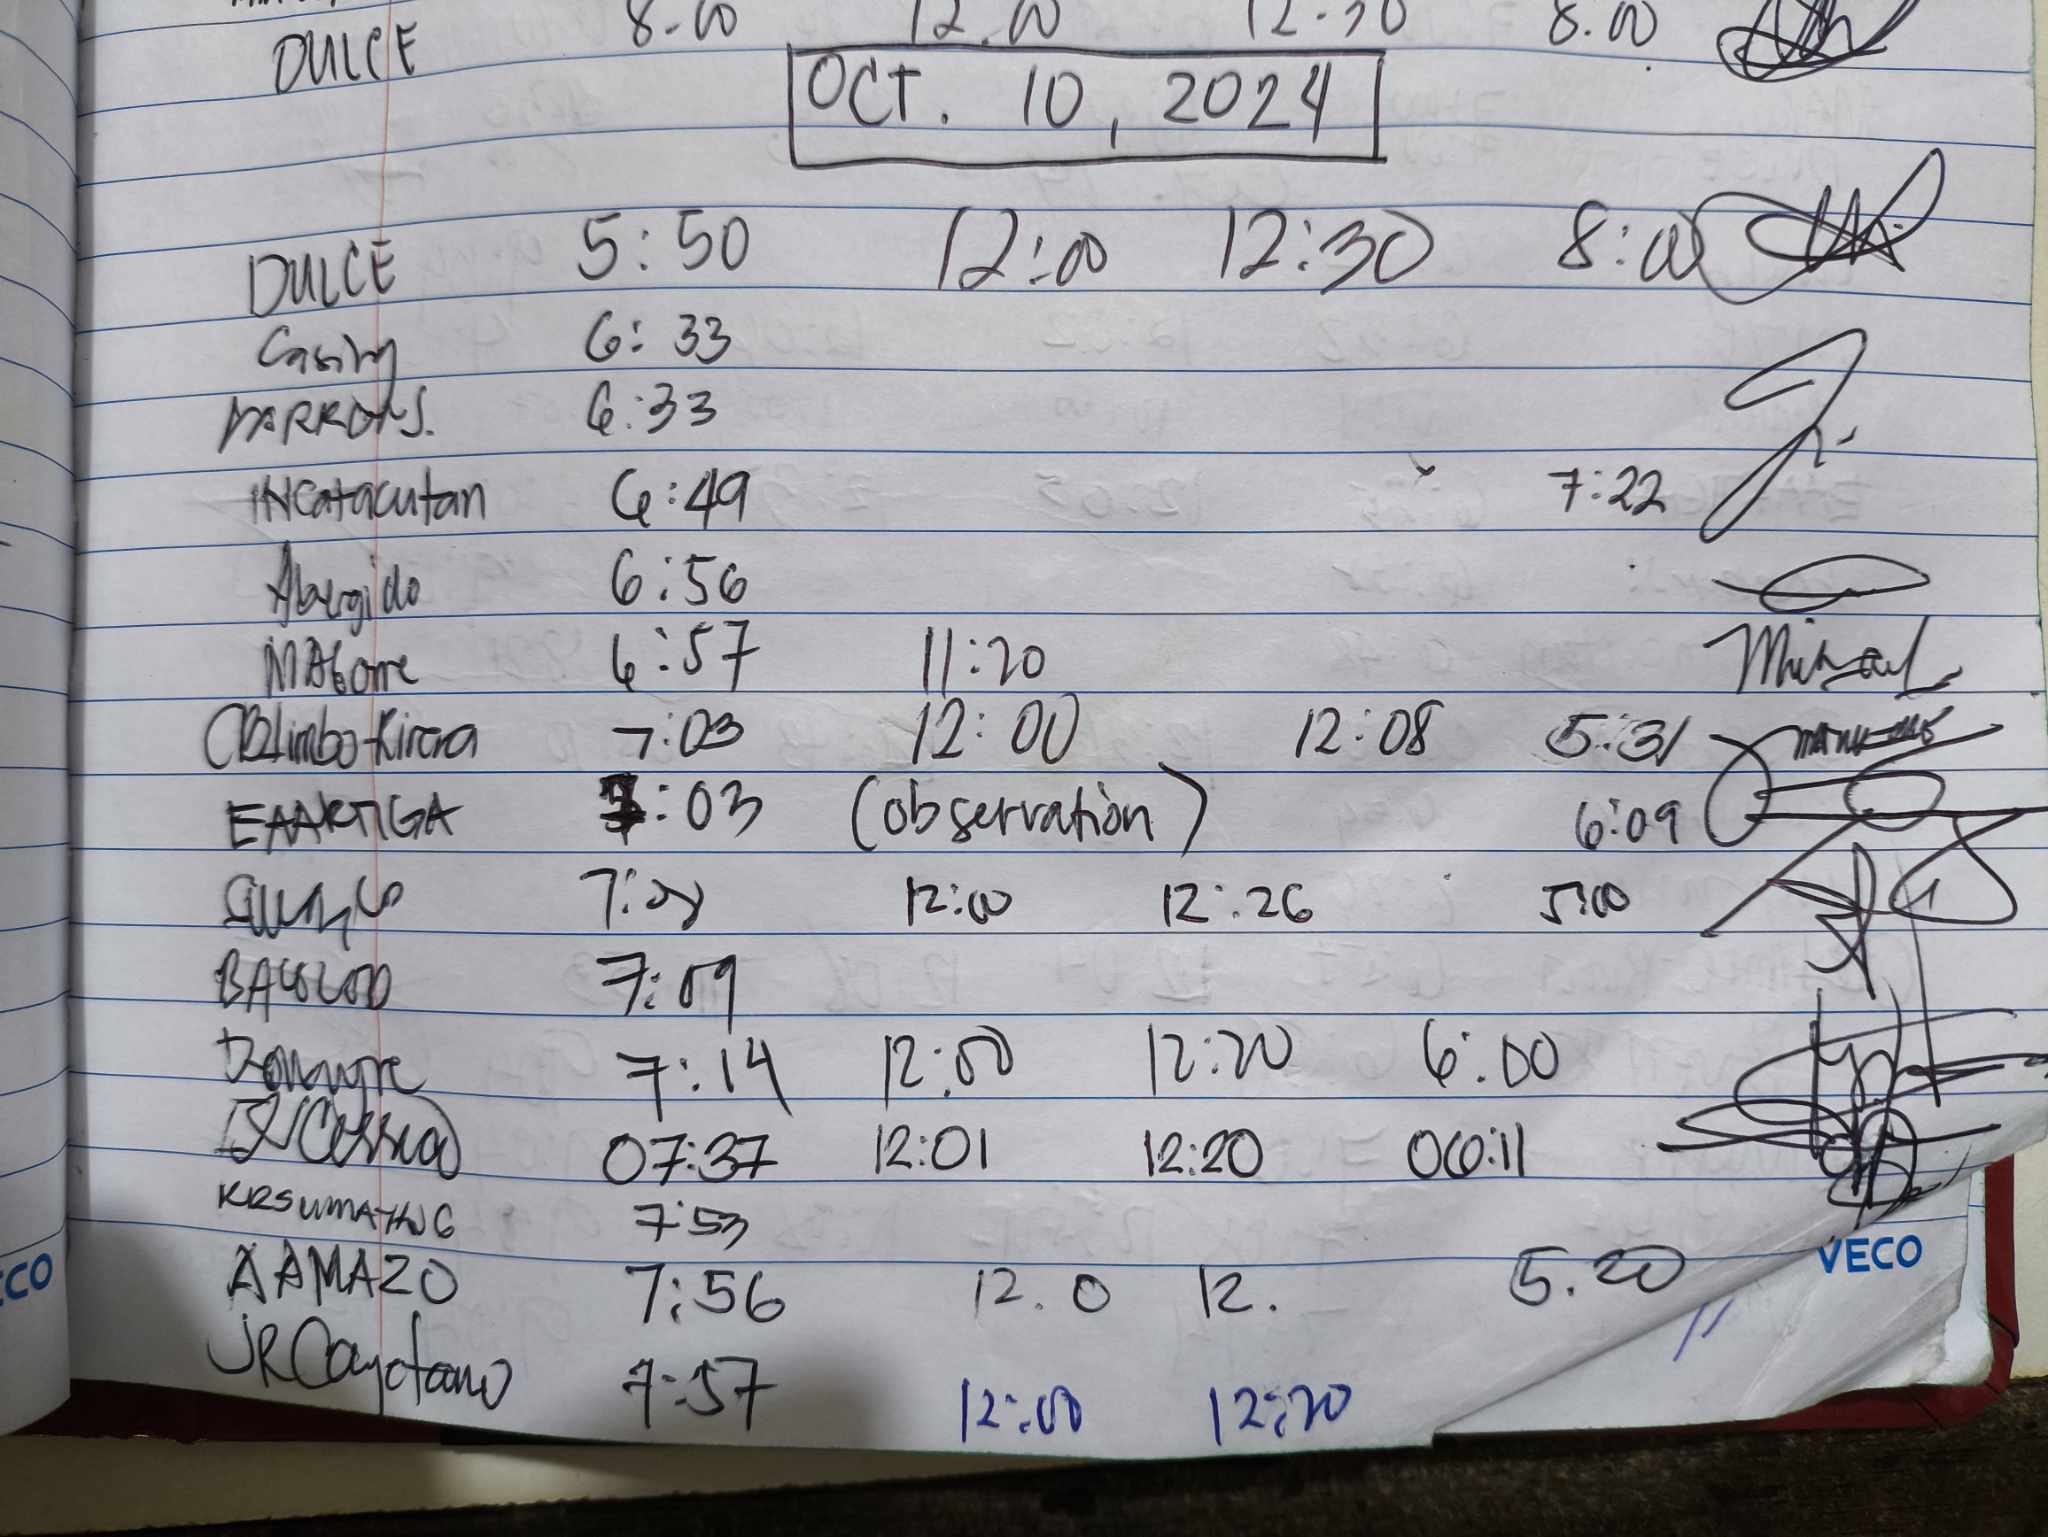 8.00 12.00 12.30 8.00
DULCE
OCT. 10, 2024
DULCE 5:50 12:00 12:30 8:00
Casing 6:33
6:33
INCatacutan 6:49 7:22
Abergido 6:56
MAGorre 6:57 11:20
CBLimbo-Rivera 7:03 12:00 12:08 5:31
EAARTIGA 7:03 (observation) 6:09
7:08 12:00 12:26 5:00
BACOLOD 7:09
7:14 12:00 12:20 6:00
07:37 12:01 12:20 06:11
KRSUMATHNG 7:53
AAMAZO 7:56 12.0 12. 5.20
VECO
JRCayetano 7:57 12:00 12:20